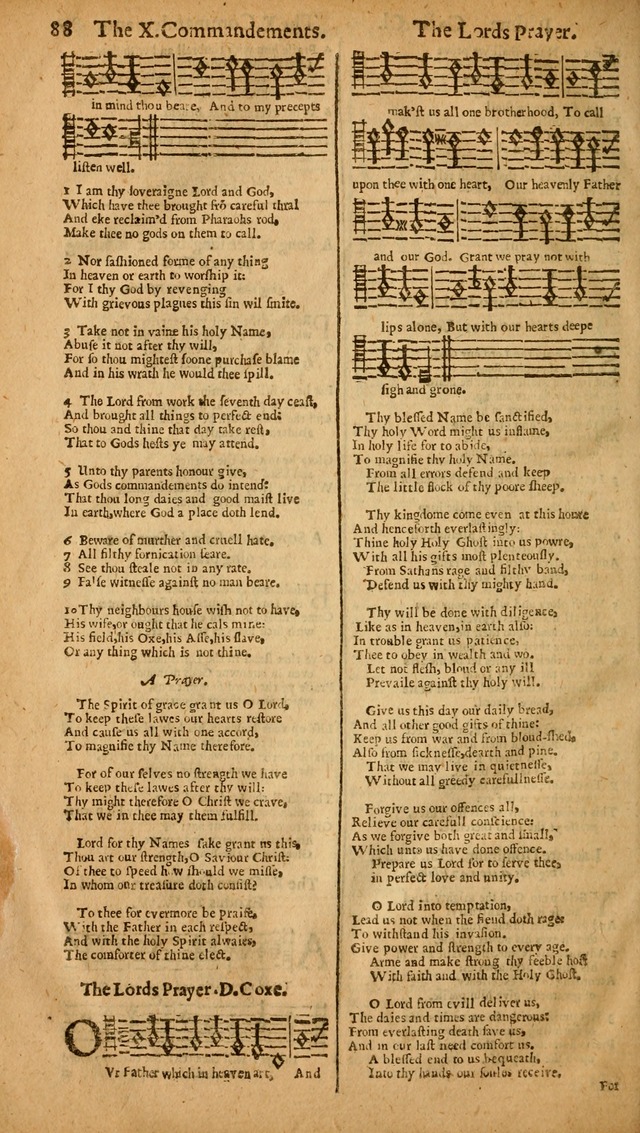 88 The X. Commandements.
in mind thou beare, And to my precepts
liſten well.
1 I am thy ſoveraigne Lord and God,
Which have thee brought frō careful thral
And eke reclaim'd from Pharaohs rod,
Make thee no gods on them to call.
2 Nor faſhioned forme of any thing
In heaven or earth to worſhip it:
For I thy God by revenging
With grievous plagues this ſin wil ſmite.
3 Take not in vaine his holy Name,
Abuſe it not after thy will,
For ſo thou mighteſt ſoone purchaſe blame
And in his wrath he would thee ſpill.
4 The Lord from work the ſeventh day ceaſt,
And brought all things to perfect end:
So thou and thine that day take reſt,
That to Gods heſts ye may attend.
5 Unto thy parents honour give,
As Gods commandements do intend:
That thou long daies and good maiſt live
In earth, where God a place doth lend.
6 Beware of murther and cruell hate.
7 All filthy fornication feare.
8 See thou ſteale not in any rate.
9 Falſe witneſſe againſt no man beare.
10 Thy neighbours houſe wiſh not to have,
His wife, or ought that he cals mine:
His field, his Oxe, his Aſſe, his ſlave,
Or any thing which is not thine.
A Prayer.
The Spirit of grace grant us O Lord,
To keep theſe lawes our hearts reſtore
And cauſe us all with one accord,
To magnifie thy Name therefore.
For of our ſelves no ſtrength we have
To keep theſe lawes after thy will:
Thy might therefore O Chriſt we crave,
That we in thee may them fulfill.
Lord for thy Names ſake grant us this,
Thou art our ſtrength, O Saviour Chriſt:
Of thee to ſpeed how ſhould we miſſe,
In whom our treaſure doth conſiſt?
To thee for evermore be praiſe,
With the Father in each reſpect,
And with the holy Spirit alwaies,
The comforter of thine elect.
The Lords Prayer. D. Coxe.
OVr Father which in heaven art, And
The Lords Prayer.
mak'ſt us all one brotherhood, To call
upon thee with one heart, Our heavenly Father
and our God. Grant we pray not with
lips alone, But with our hearts deepe
ſigh and grone.
Thy bleſſed Name be ſanctified,
Thy holy Word might us inflame,
In holy life for to abide,
To magnifie thy holy Name.
From all errors defend and keep
The little flock of thy poore ſheep.
Thy kingdome come even at this houre
And henceforth everlaſtingly:
Thine holy Holy Ghoſt into us powre,
With all his gifts moſt plenteouſly.
From Sathans rage and filthy band,
Defend us with thy mighty hand.
Thy will be done with diligence,
Like as in heaven, in earth alſo:
In trouble grant us patience,
Thee to obey in wealth and wo.
Let not fleſh, bloud or any ill
Prevaile againſt thy holy will.
Give us this day our daily bread,
And all other good gifts of thine:
Keep us from war and from bloud-ſhed,
Alſo from ſickneſſe, dearth and pine.
That we may live in quietneſſe,
Without all greedy carefulneſſe.
Forgive us our offences all,
Relieve our carefull conſcience:
As we forgive both great and ſmall,
Which unto us have done offence.
Prepare us Lord for to ſerve thee,
in perfect love and unity.
O Lord into temptation,
Lead us not when the fiend doth rage:
To withſtand his invaſion.
Give power and ſtrength to every age.
Arme and make ſtrong thy feeble hoſt
With faith and with the Holy Ghoſt.
O Lord from evill deliver us,
The daies and times are dangerous:
From everlaſting death ſave us,
And in our laſt need comfort us.
A bleſſed end to us bequeath,
Into thy hands our ſoules receive.
For